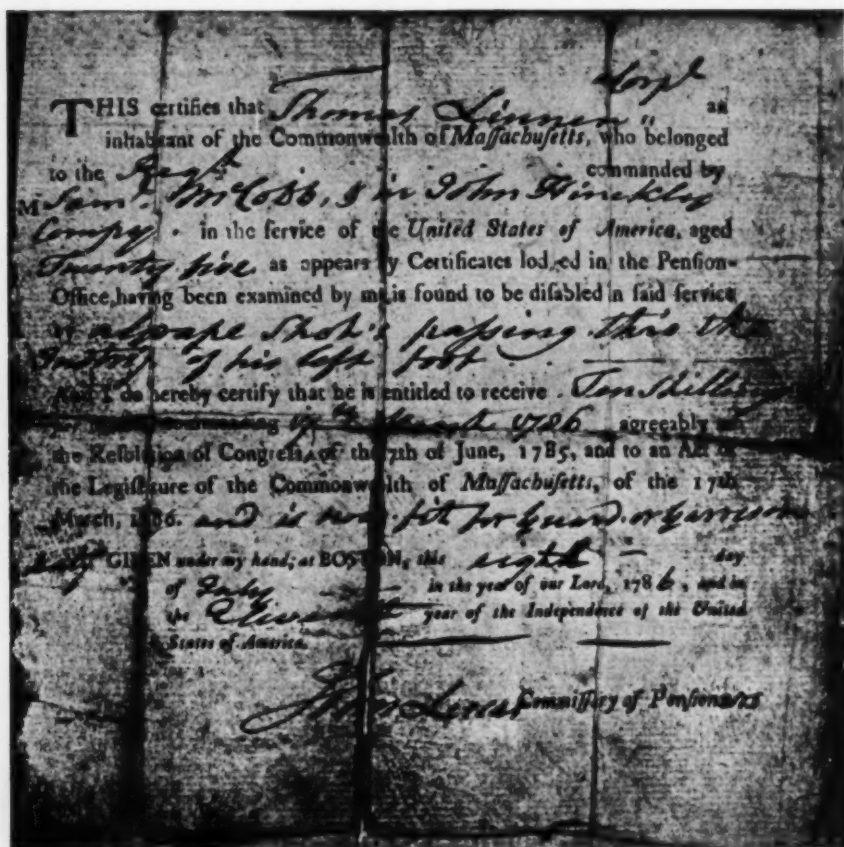 Corpl
THIS certifies that Thomas Linnen an
inhabitant of the Commonwealth of Massachusetts, who belonged
to the Regt commanded by
Saml. McCobb, & in John Hinckly
Compy. in the service of the United States of America, aged
Twenty five as appears by Certificates lodged in the Pension-
Office, having been examined by me, is found to be disabled in said service
Shot passing thro the
of his left foot
And I do hereby certify that he is entitled to receive Ten Shillings
March 1786 agreeably to
the Resolution of Congress, of the 7th of June, 1785, and to an Act of
the Legislature of the Commonwealth of Massachusetts, of the 17th
March, 1786. and is now fit for Guard or Garrison
duty GIVEN under my hand, at BOSTON, this eighth day
of July in the year of our Lord, 1786, and in
the Eleventh year of the Independence of the United
States of America.
John Lucas Commissary of Pensioners